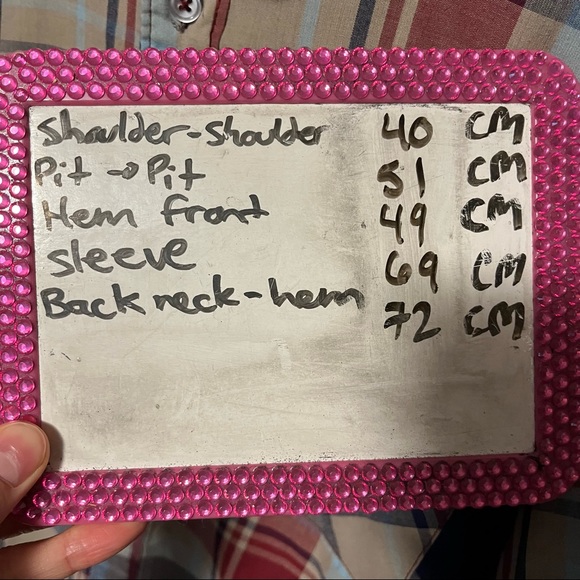 Shoulder-Shoulder 40 CM
Pit → Pit 51 CM
Hem front 49 CM
sleeve 69 CM
Back neck-hem 72 CM